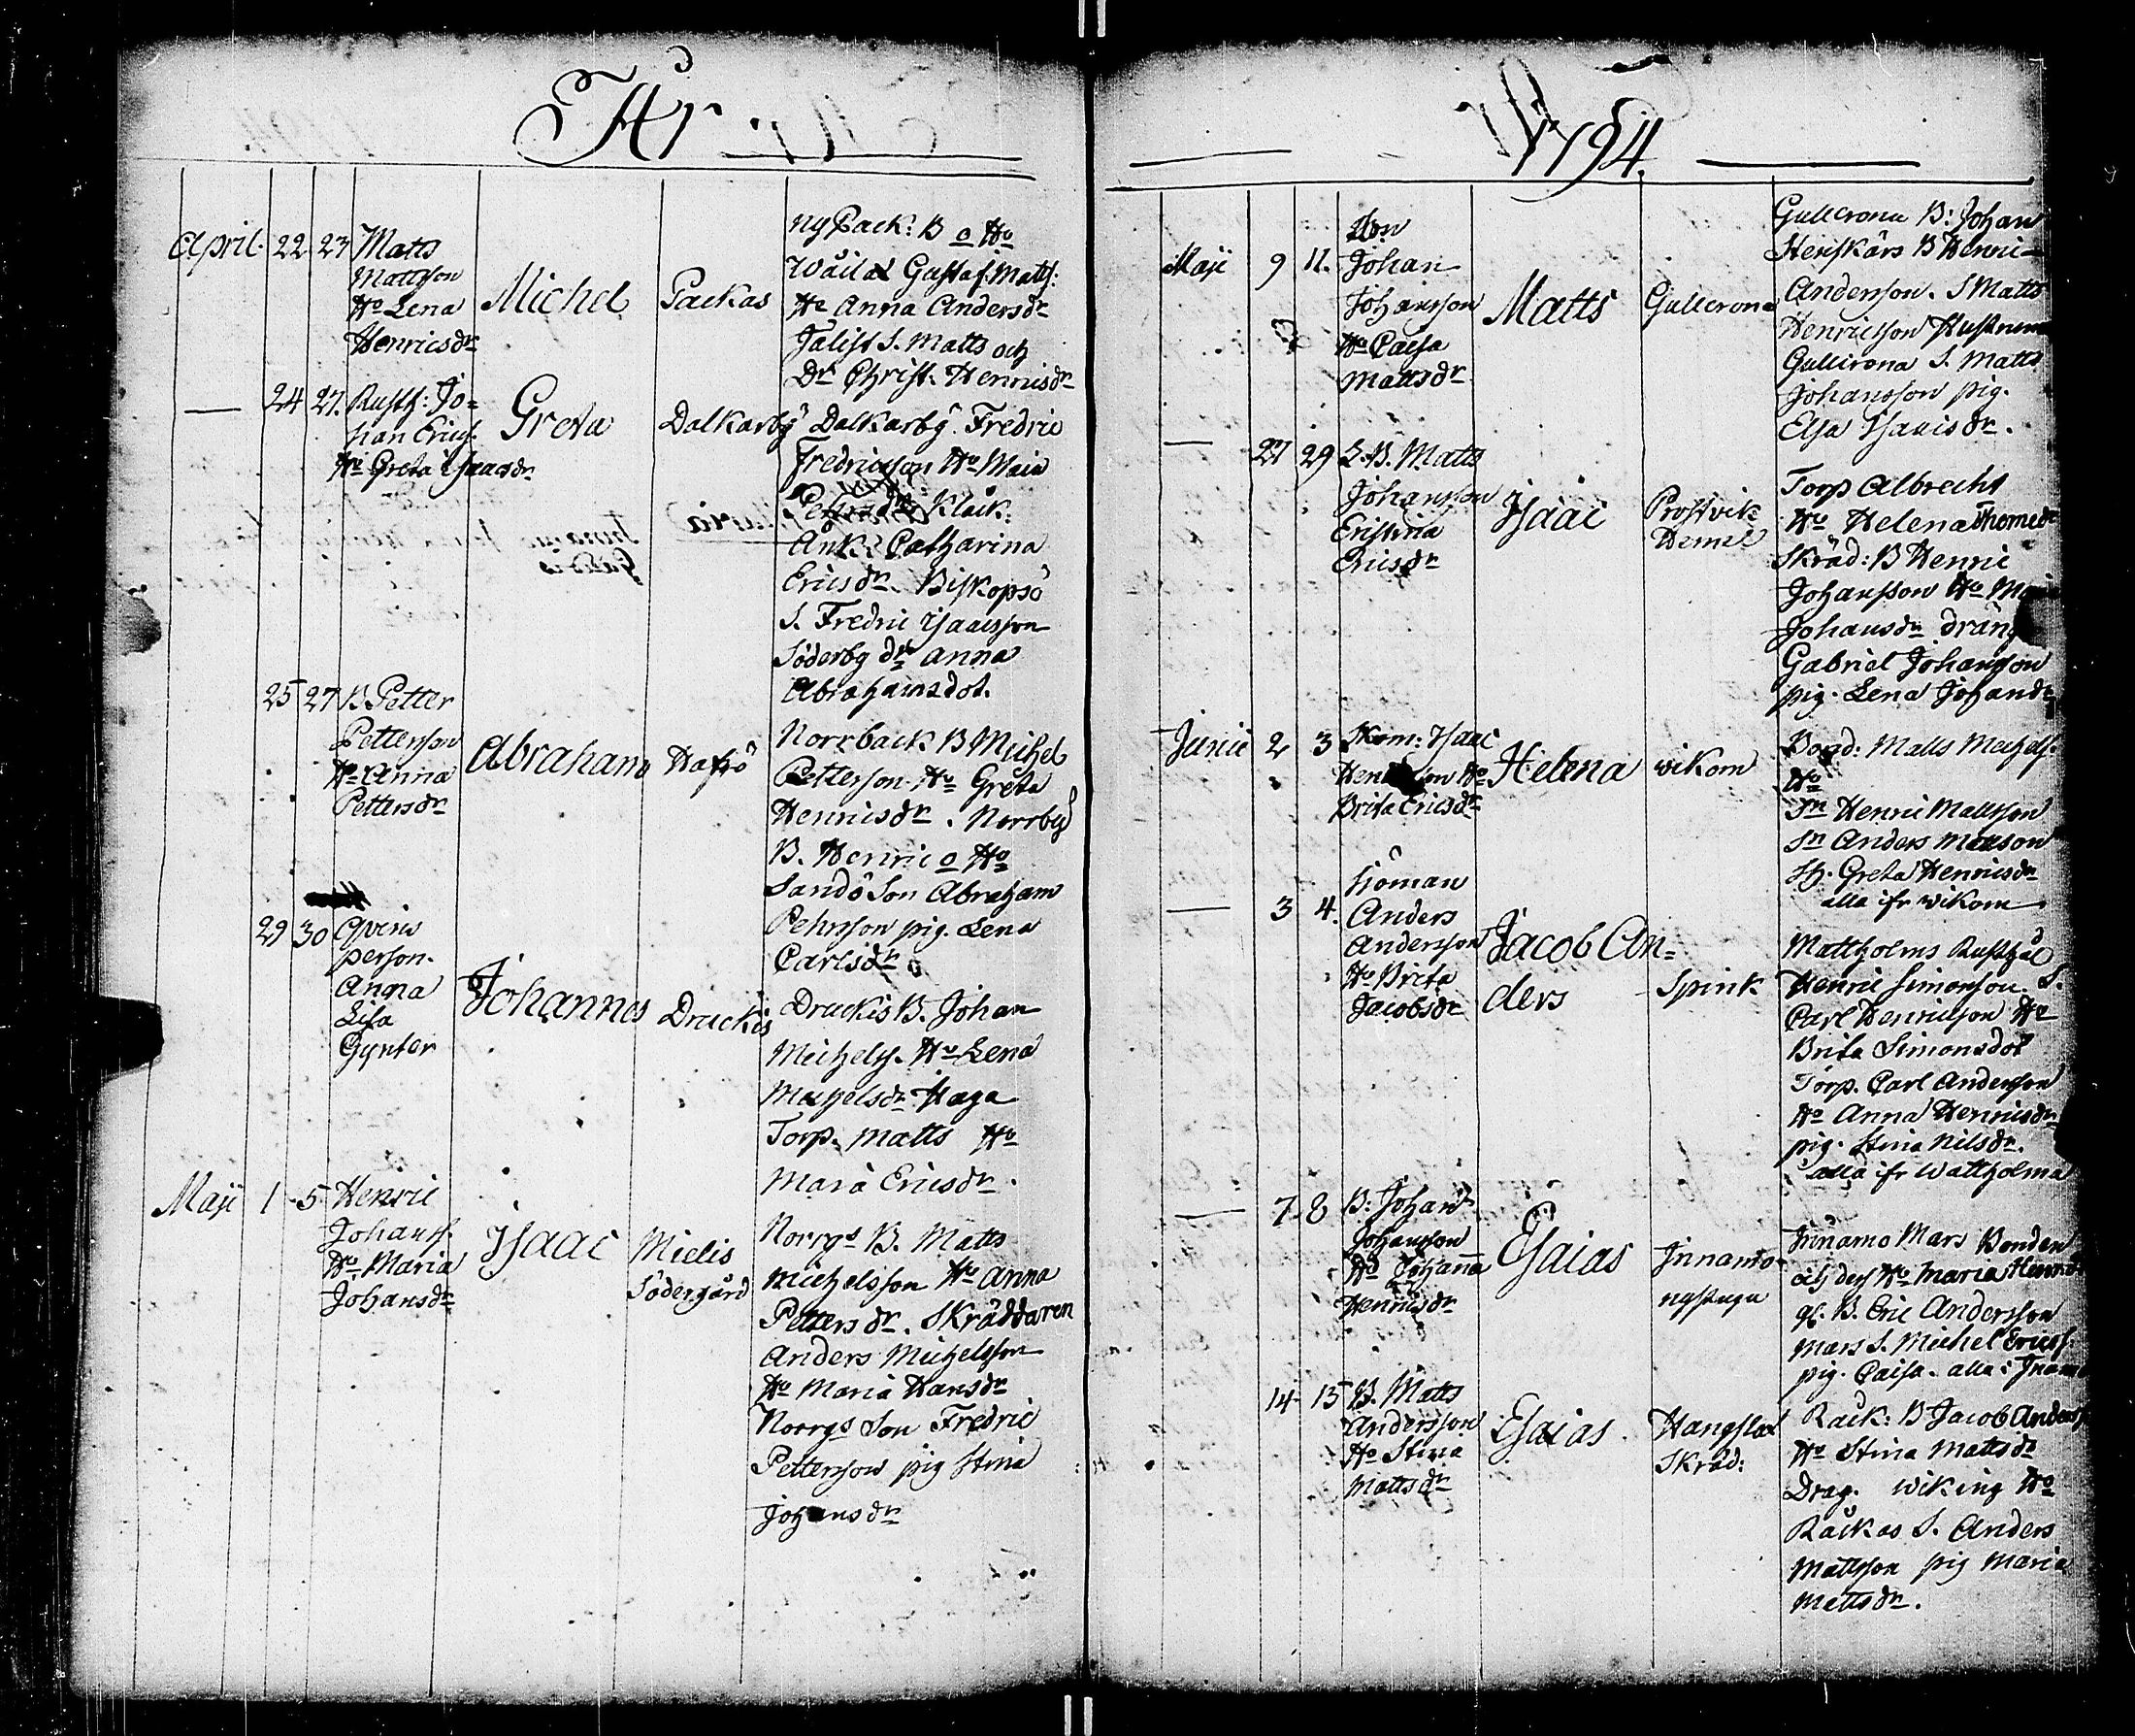 År
April. 22 23 Matts
Mattsson
Ho Lena
Henricsdr
Michel
Packas
Ny Pack: B o Ho
Gustaf Matts:
Ho Anna Andersdr
S. Matts och
Dr Christ. Henricsdr
— 24 27. Rusth: Jo=
han Erics.
Ho Greta Isaacsdr
Greta
Dalkarby
Dalkarby Fredric
Fredricsson Ho Maia
Pettersdr Klåck:
Änk: Catharina
Ericsdr. Biskopsö
S. Fredric Isaacsson
Söderby dr Anna
Abrahamsdot.
25 27 B Petter
Pettersson
Ho Anna
Pettersdr
Abraham
Hafsö
Norrback B Michel
Petterson Ho Greta
Henricsdr. Norrby
B. Henric o Ho
Sandö Son Abraham
Pehrsson pig. Lena
Carlsdr
29 30 Qvins
person.
Anna
Lisa
Gynter
Johannes
Druckis
Druckis B. Johan
Michels. Ho Lena
Michelsdr Haga
Torp. Matts Ho
Maria Ericsdr.
Maji 1 5 Henric
Johans.
Ho Maria
Johansdr
Isaac
Mielis
Södergård
Norrgs B. Matts
Michelsson Ho Anna
Pettersdr. Skräddaren
Anders Michelsson
Ho Maria Hansdr
Norrgs Son Fredric
Pettersson pig Stina
Johansdr
1794.
Maji 9 11.
Johan
Johansson
Ho Caisa
Mattsdr
Matts
Gullcrona
Gullcrona B: Johan
Henskärs B Henric
Andersson. S Matts
Henricsson Hustrun
Gullcrona S. Matts
Johansson pig.
Elsa Isaacsdr.
— 27 29 B. Matts
Johansson
Cristina
Ericsdr
Isaac
Prostvik
Hemel
Torp Albrecht
Ho Helena Thomedr
Skräd: B Henric
Johansson Ho Maria
Johansdr dräng
Gabriel Johansson
pig. Lena Johandr
Junii 2 3 Skom: Isaac
Ho
Brita Ericsdr
Helena
Wikom
Bond: Matts Michels.
Ho
Sn Henric Mattsson
Sn Anders Mattson
Greta Henricsdr
alla ifr Wikom
— 3 4. Sjöman
Anders
Andersson
Ho Brita
Jacobsdr
Jacob An=
ders
Spink
Mattholms Rusthål
Henric Simonsson. S.
Carl Henricsson Ho
Brita Simonsdot
Torp. Carl Andersson
Ho Anna Henricsdr
pig. Stina Nilsdr.
alla ifr Wattholma
— 7 8 B: Johan
Johansson
Ho Johanna
Henricsdr
Esaias
Innamo
nystugu
Innamo Mars Bonden
och des Ho Maria
gl. B. Eric Andersson
Mars S. Michel Erics.
pig. Caisa. alla i
14 15 B. Matts
Andersson
Ho Stina
Mattsdr
Esaias.
Skräd:
Räck: B Jacob
Ho Stina Mattsdr
Drag. Wiking Ho
Räckas S. Anders
Mattsson pig Maria
Mattsdr.